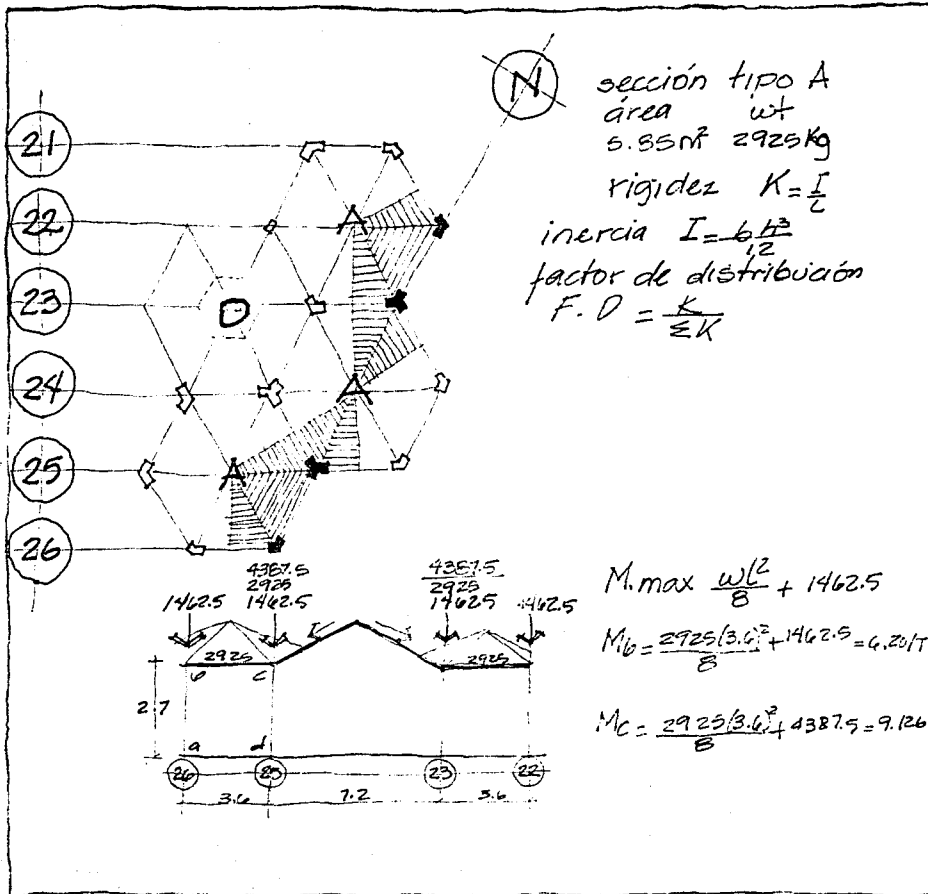 N
sección tipo A
área wt
5.85m² 2925Kg
rigidez K=I/L
inercia I=bh³/12
factor de distribución
F.D = K/ΣK
21
22
23
24
25
26
A
D
A
A
4387.5 4387.5
2925 2925
1462.5 1462.5 1462.5 1462.5
2925 2925
b c
2.7
a d
26 25 23 22
3.6 7.2 3.6
M.max wl²/8 + 1462.5
Mb=2925(3.6)²/8+1462.5=6.201T
Mc=2925(3.6)²/8+4387.5=9.126